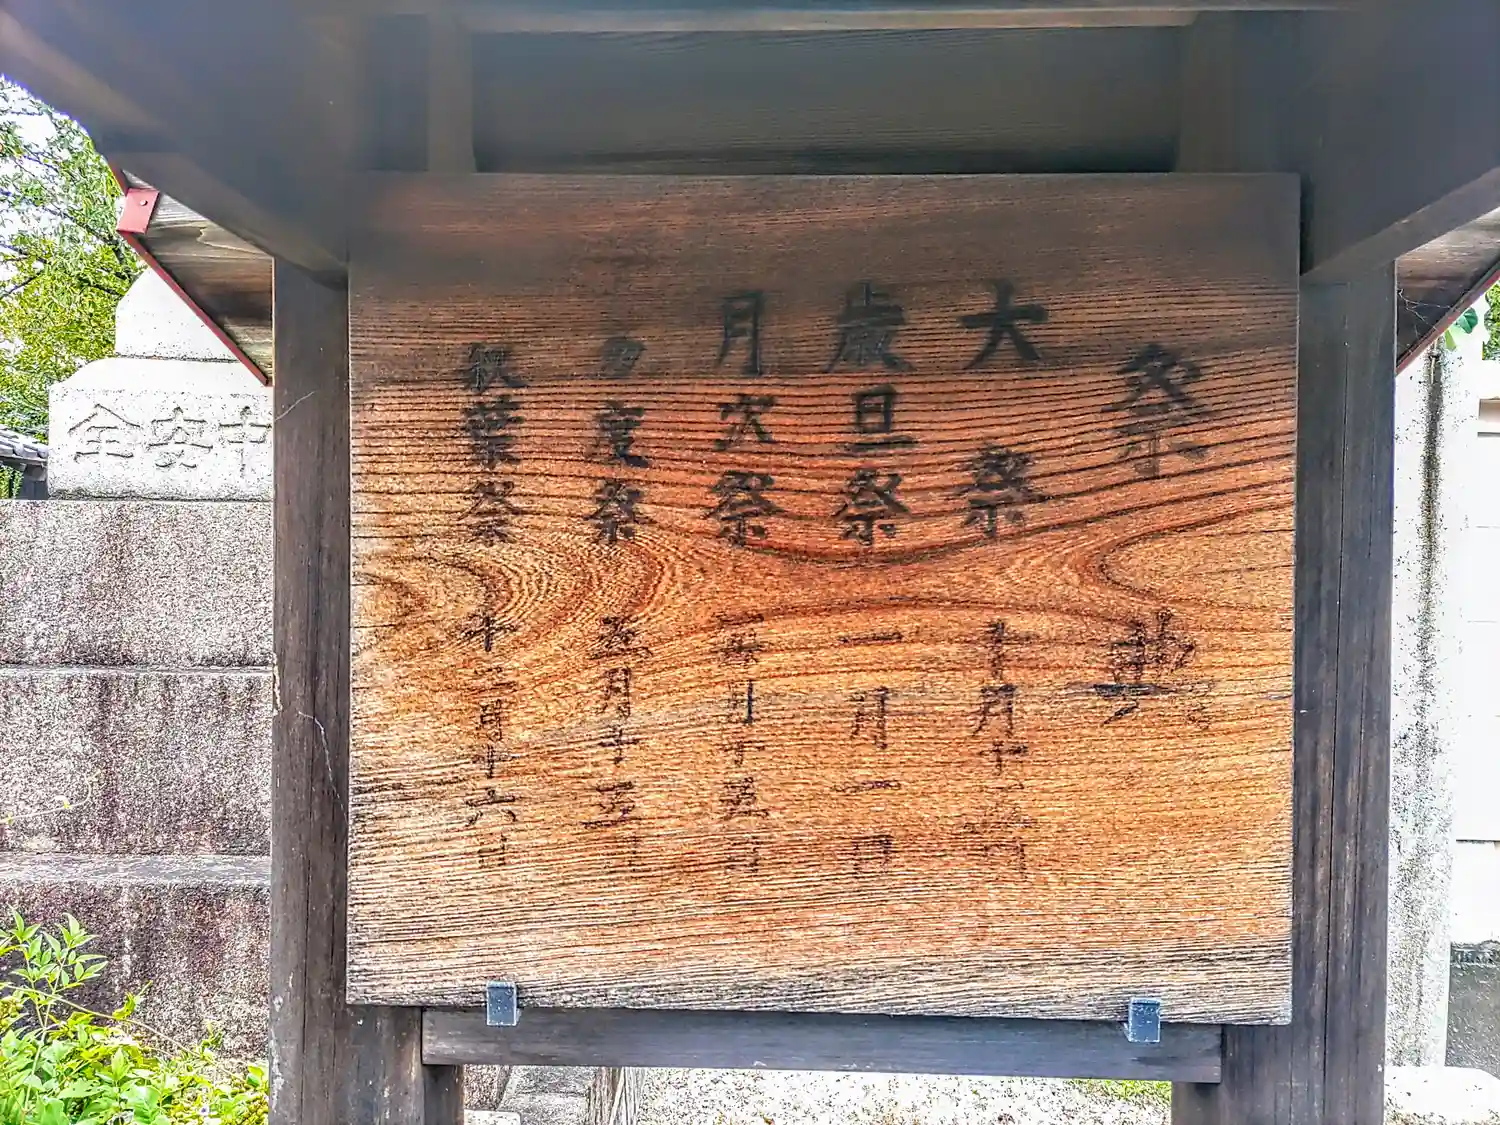 祭
大祭 十月十 日
歳旦祭 一月一日
月次祭 毎月十五日
度祭 五月十五日
秋葉祭 十二月十六日
中安全